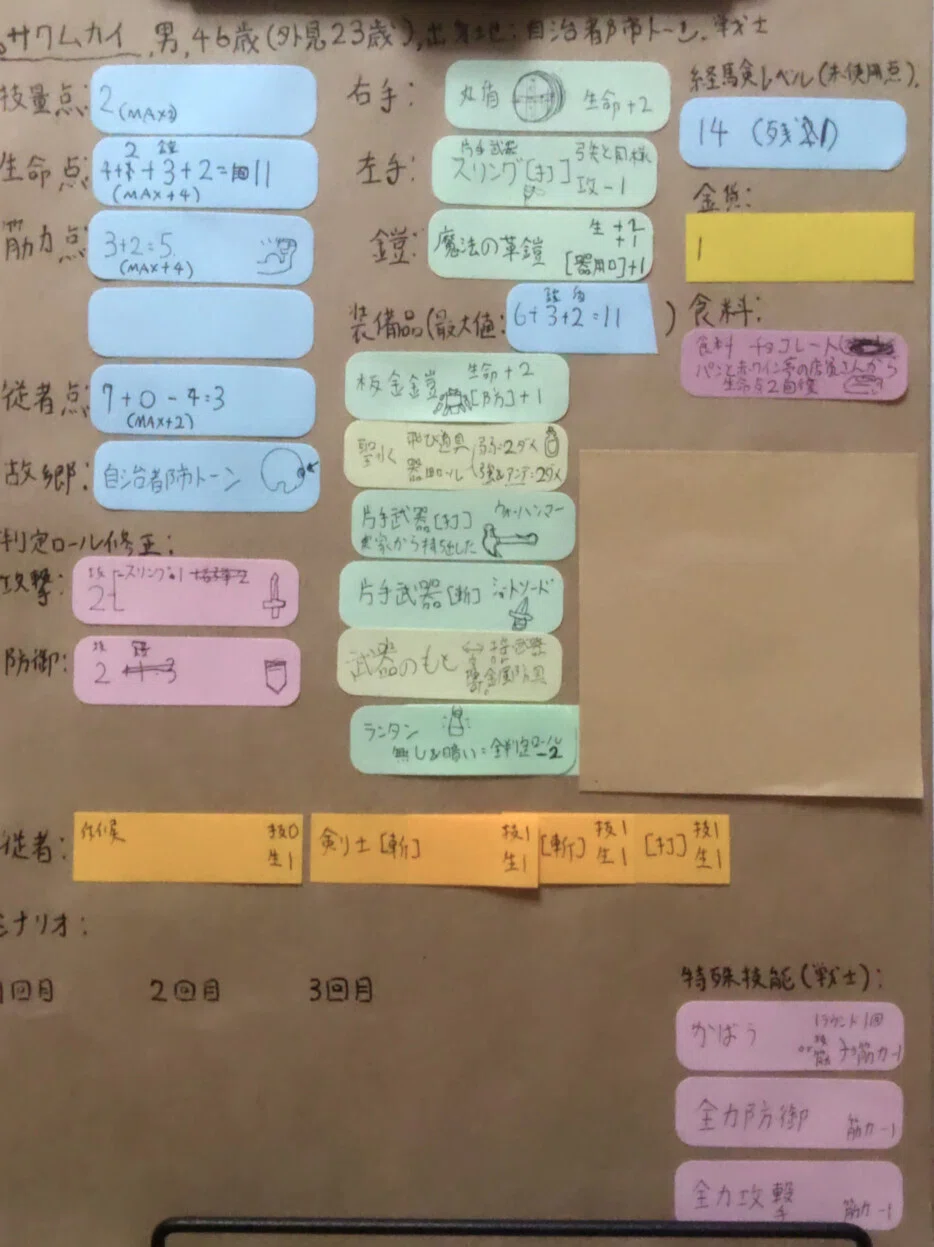 サワムカイ 男, 46歳(外見23歳), 出身地:自治都市トーン, 戦士
技量点:
2(MAX3)
生命点:
+3+2= 11
(MAX+4)
筋力点
3+2=5
(MAX+4)
従者点:
7+0-4=3
(MAX+2)
故郷:
自治都市トーン
判定ロール修正:
攻撃:
2
スリング-1
防御:
2
右手:
丸盾
生命+2
左手:
片手武器
スリング[打]
弓矢と同様
攻-1
鎧:
魔法の革鎧
生+2
+1
[器用ロ]+1
装備品(最大値:
6+3+2=11
)
板金鎧
生命+2
[防]+1
聖水
飛び道具
器用ロール
弱:2ダメ
強&アンデ=2ダメ
片手武器[打]
ウォーハンマー
実家から持ち出した
片手武器[斬]
ショートソード
武器のもと
ランタン
無しな暗い=全判定ロール
-2
経験レベル(未使用点).
14
金貨:
1
食料:
食料 チョコレート
パンと赤ワイン亭の店員さんから
生命点2回復
従者:
斥候
技0
生1
剣士[斬]
技1
生1
[斬]
技1
生1
[打]
技1
生1
シナリオ:
1回目
2回目
3回目
特殊技能(戦士):
かばう
1ラウンド1回
筋力-1
全力防御
筋力-1
全力攻撃
筋力-1